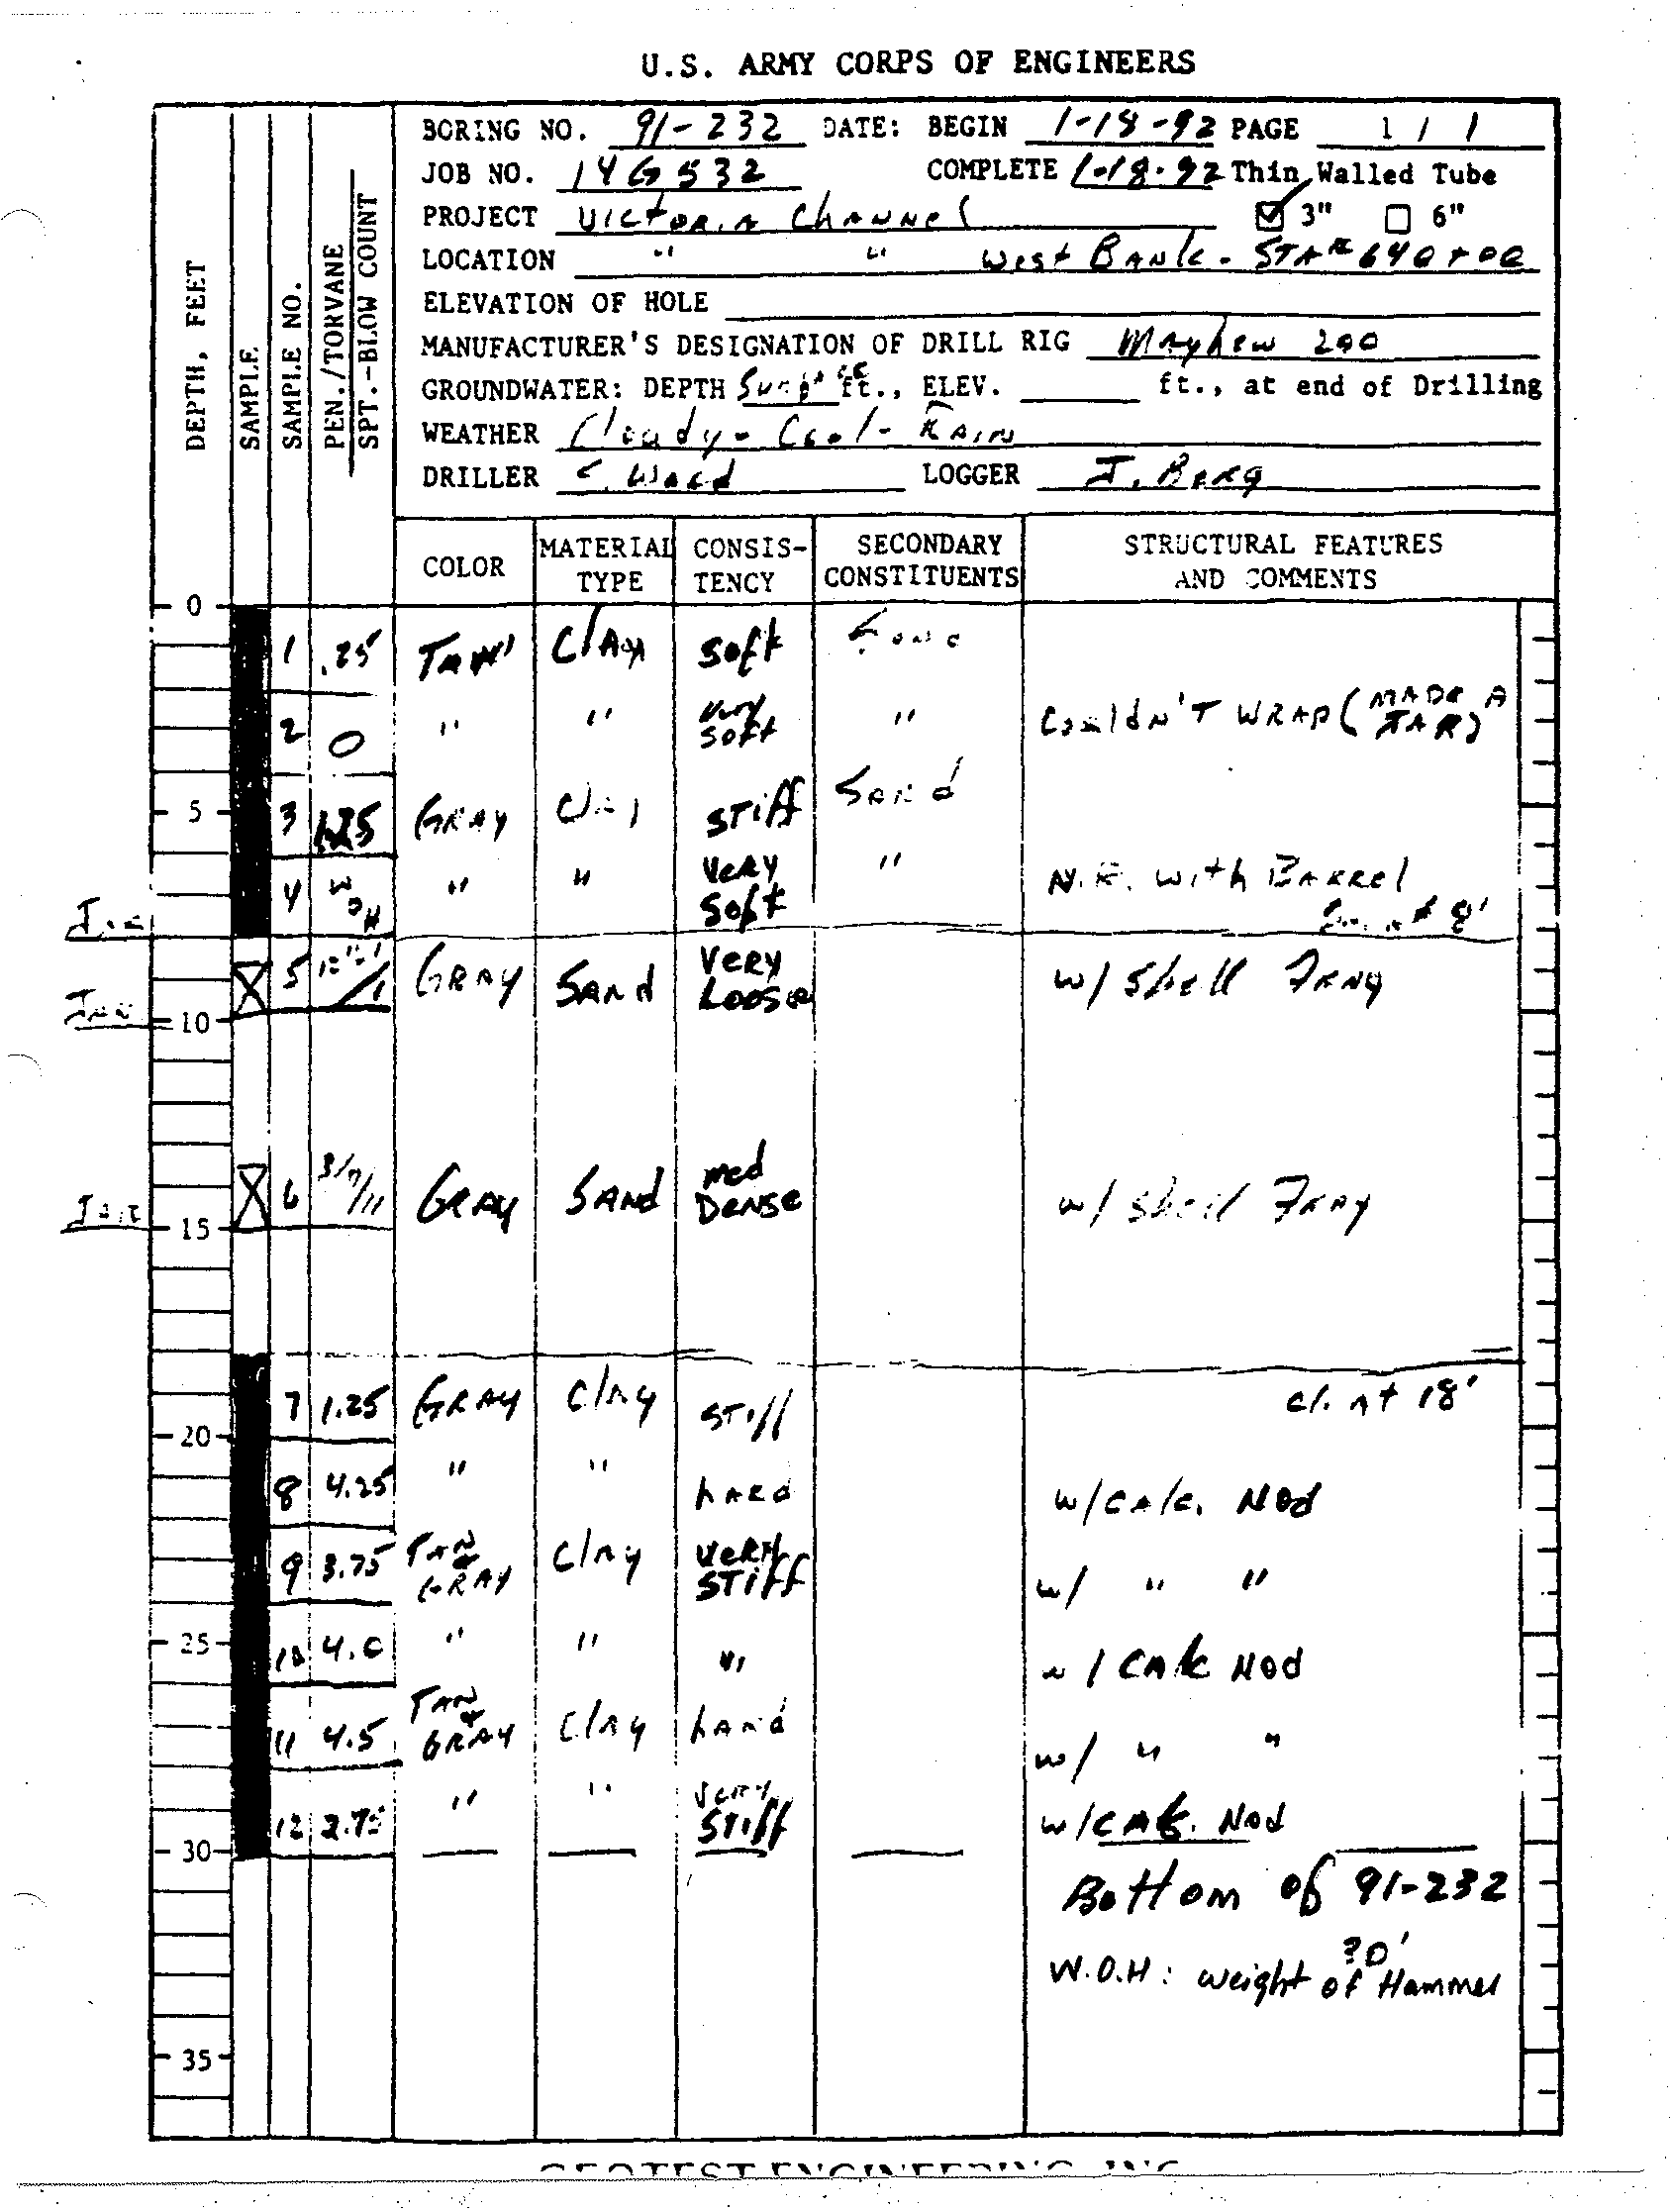 U.S. ARMY CORPS OF ENGINEERS
BORING NO. 91-232 DATE: BEGIN 1-18-92 PAGE 1 / 1
JOB NO. 14G532 COMPLETE 1-18-92 Thin Walled Tube
PROJECT VICTORIA CHANNEL 3" 6"
LOCATION " " West BANK - STA 640+00
ELEVATION OF HOLE
MANUFACTURER'S DESIGNATION OF DRILL RIG Mayhew 200
GROUNDWATER: DEPTH ft., ELEV. ft., at end of Drilling
WEATHER Cloudy - Cool - RAIN
DRILLER LOGGER J. BERG
DEPTH, FEET
SAMPLE
SAMPLE NO.
PEN./TORVANE
SPT.-BLOW COUNT
COLOR MATERIAL TYPE CONSIS-TENCY SECONDARY CONSTITUENTS STRUCTURAL FEATURES AND COMMENTS
0
1 .25 TAN CLAY soft
2 0 " " very soft " Couldn't WRAP (MADE A JAR)
5 3 1.25 GRAY Clay STIFF SAND
4 WOH " " VERY Soft " N.R. with BARREL
8'
5 GRAY SAND VERY LOOSE w/ Shell FRAG
10
JAR
6 3/7/11 GRAY SAND med DENSE w/ shell FRAG
15
7 1.25 GRAY Clay STIFF Cl. At 18'
20
8 4.25 " " hard w/CALC. Nod
9 3.75 TAN & GRAY Clay VERY STIFF w/ " "
25
10 4.0 " " " w/ CALC Nod
11 4.5 TAN & GRAY Clay hard w/ " "
12 2.75 " " VERY STIFF w/CALC. Nod
30
Bottom of 91-232
W.O.H: weight of Hammer
35